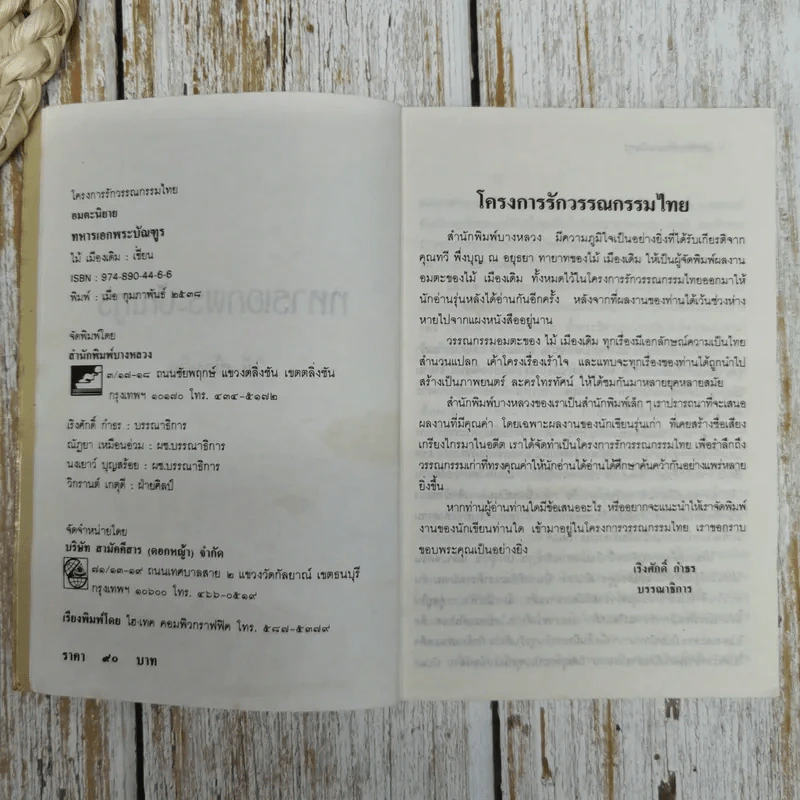 โครงการรักวรรณกรรมไทย
อมตะนิยาย
ทหารเอกพระบัณฑูร
ไม้ เมืองเดิม : เขียน
ISBN : 974-890-44-6-6
พิมพ์ : เมื่อ กุมภาพันธ์ ๒๕๓๘
จัดพิมพ์โดย
สำนักพิมพ์บางหลวง
๓/๑๗-๑๘ ถนนชัยพฤกษ์ แขวงตลิ่งชัน เขตตลิ่งชัน
กรุงเทพฯ ๑๐๑๗๐ โทร. ๔๓๔-๕๑๗๒
เริงศักดิ์ กำธร : บรรณาธิการ
ณัฏยา เหมือนอ่วม : ผช.บรรณาธิการ
นงเยาว์ บุญสร้อย : ผช.บรรณาธิการ
วิกรานต์ เกตุดี : ฝ่ายศิลป์
จัดจำหน่ายโดย
บริษัท สามัคคีสาร (ดอกหญ้า) จำกัด
๗๑/๑๓-๑๙ ถนนเทศบาลสาย ๒ แขวงวัดกัลยาณ์ เขตธนบุรี
กรุงเทพฯ ๑๐๖๐๐ โทร. ๔๖๖-๐๕๑๙
เรียงพิมพ์โดย ไฮ-เทค คอมพิวกราฟฟิค โทร. ๕๘๗-๕๓๗๙
ราคา ๙๐ บาท
โครงการรักวรรณกรรมไทย
สำนักพิมพ์บางหลวง มีความภูมิใจเป็นอย่างยิ่งที่ได้รับเกียรติจาก
คุณทวี พึ่งบุญ ณ อยุธยา ทายาทของไม้ เมืองเดิม ให้เป็นผู้จัดพิมพ์ผลงาน
อมตะของไม้ เมืองเดิม ทั้งหมดไว้ในโครงการรักวรรณกรรมไทยออกมาให้
นักอ่านรุ่นหลังได้อ่านกันอีกครั้ง หลังจากที่ผลงานของท่านได้เว้นช่วงห่าง
หายไปจากแผงหนังสืออยู่นาน
วรรณกรรมอมตะของ ไม้ เมืองเดิม ทุกเรื่องมีเอกลักษณ์ความเป็นไทย
สำนวนแปลก เค้าโครงเรื่องเร้าใจ และแทบจะทุกเรื่องของท่านได้ถูกนำไป
สร้างเป็นภาพยนตร์ ละครโทรทัศน์ ให้ได้ชมกันมาหลายยุคหลายสมัย
สำนักพิมพ์บางหลวงของเราเป็นสำนักพิมพ์เล็ก ๆ เราปรารถนาที่จะเสนอ
ผลงานที่มีคุณค่า โดยเฉพาะผลงานของนักเขียนรุ่นเก่า ที่เคยสร้างชื่อเสียง
เกรียงไกรมาในอดีต เราได้จัดทำเป็นโครงการรักวรรณกรรมไทย เพื่อรำลึกถึง
วรรณกรรมเก่าที่ทรงคุณค่าให้นักอ่านได้อ่านได้ศึกษาค้นคว้ากันอย่างแพร่หลาย
ยิ่งขึ้น
หากท่านผู้อ่านท่านใดมีข้อเสนออะไร หรืออยากจะแนะนำให้เราจัดพิมพ์
งานของนักเขียนท่านใด เข้ามาอยู่ในโครงการวรรณกรรมไทย เราขอกราบ
ขอบพระคุณเป็นอย่างยิ่ง
เริงศักดิ์ กำธร
บรรณาธิการ